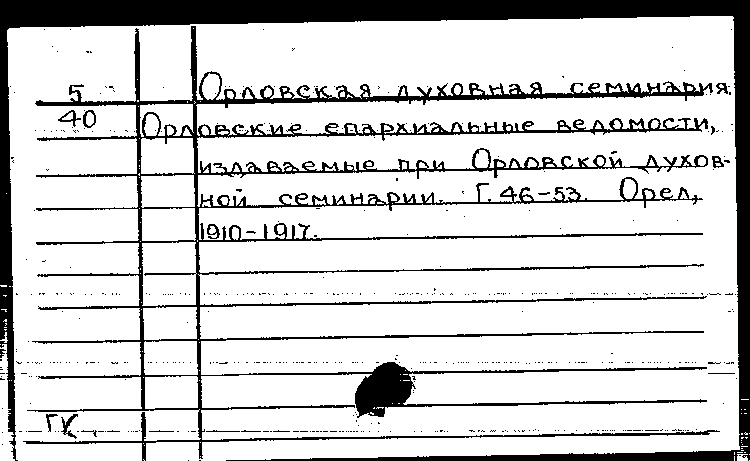 5 Орловская духовная семинария.
40 Орловские епархиальные ведомости,
издаваемые при Орловской духов-
ной семинарии. Г. 46-53. Орел,
1910-1917.
ГК.